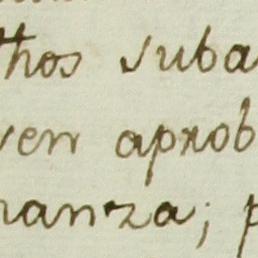 thos suba
ven aprob
ranza; p